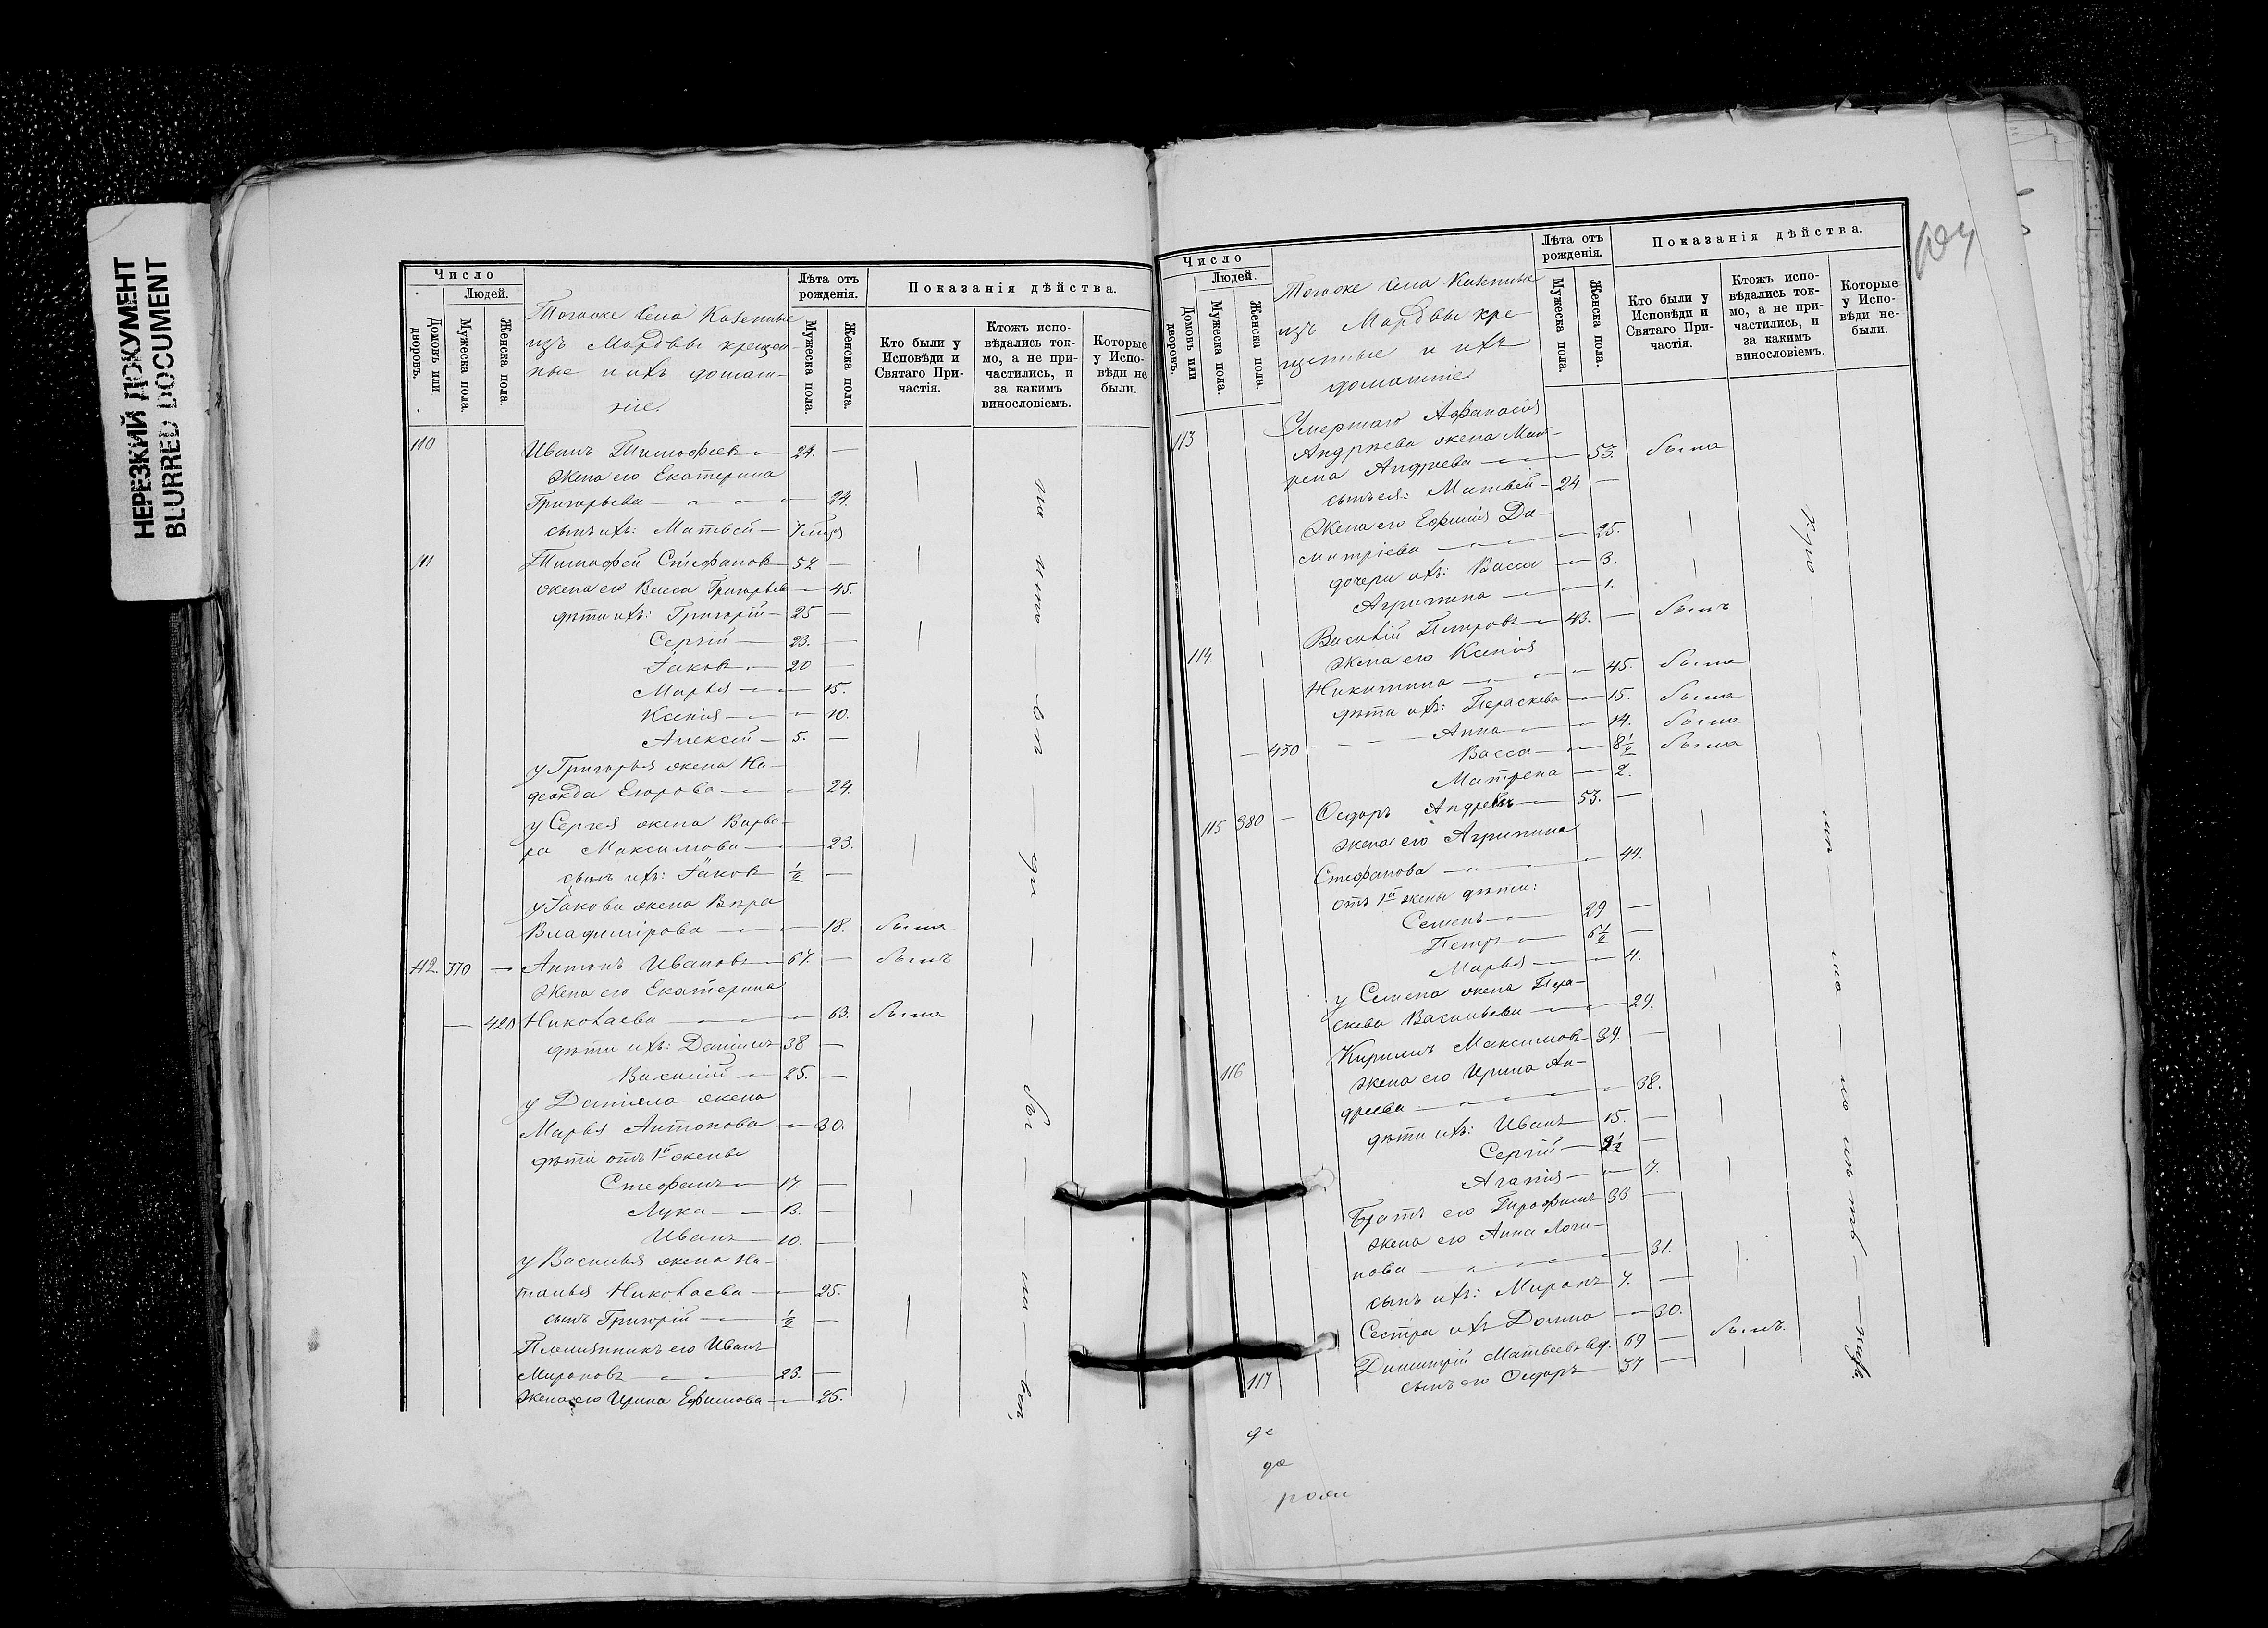 НЕРЕЗКИЙ ДОКУМЕНТ
BLURRED DOCUMENT
Число
Домовъ или дворовъ.
Людей.
Мужеска пола.
Женска пола.
Тогоже села Казенные
изъ Мордвы крещен-
ные и ихъ домаш-
ніе.
Лѣта отъ рожденія.
Мужеска пола.
Женска пола.
Показанія дѣйства.
Кто были у Исповѣди и Святаго При- частія.
Ктожъ испо- вѣдались ток- мо, а не при- частились, и за какимъ винословіемъ.
Которые у Испо- вѣди не были.
110 Иванъ Тимофеевъ 24. —
Жена его Екатерина
Григорьева — 24.
сынъ ихъ: Матвей —
111 Тимофей Стефановъ 52 —
жена его Васса Григорьева — 45.
дѣти ихъ: Григорій — 25 —
Сергій — 23. —
Іаковъ — 20 —
Марья — 15.
Ксенія — 10.
Алексей — 5. —
у Григорья жена На-
дежда Егорова — 24.
у Сергея жена Варва-
ра Максимова — 23.
сынъ ихъ: Іаковъ ½ —
у Іакова жена Вѣра
Владимірова — 18. была
112. 370 — Антонъ Ивановъ 67. — былъ
Жена его Екатерина
— 420 Николаева — 63. была
дѣти ихъ: Даніилъ 38 —
Василій — 25. —
у Даніила жена
Марья Антонова — 30.
дѣти отъ 1й жены
Стефанъ 17. —
Лука — 13. —
Иванъ — 10. —
у Василья жена На-
талья Николаева — 25.
сынъ Григорій — ½ —
Племянникъ его Иванъ
Мироновъ — 23. —
Жена его Ирина Ефимова — 25.
Число
Домовъ или дворовъ.
Людей.
Мужеска пола.
Женска пола.
Тогоже села Казенные
изъ Мордвы кре-
щенные и ихъ
домашніе
Лѣта отъ рожденія.
Мужеска пола.
Женска пола.
Показанія дѣйства.
Кто были у Исповѣди и Святаго При- частія.
Ктожъ испо- вѣдались ток- мо, а не при- частились, и за какимъ винословіемъ.
Которые у Испо- вѣди не- были.
113 Умершаго Афанасія
Андреева жена Мат-
рена Андреева — 53. была
сынъ ея: Матвей — 24 —
Жена его Ефимія Ди-
митріева — 25.
дочери ихъ: Васса — 3.
Агрипина — 1.
114. Василій Петровъ 43. — былъ
Жена его Ксенія
Никитина — 45. была
дѣти ихъ: Параскева — 15. была
— 430 — Анна — 14. была
Васса — 8½ была
Матрена — 2.
115 380 — Ѳедоръ Андреевъ — 53. —
Жена его Агрипина
Стефанова — 44.
отъ 1й жены дѣти:
Семенъ — 29 —
Петръ — 6½ —
Марья — 4.
у Семена жена Пара-
скева Васильева — 24.
116 Кирилъ Максимовъ 39. —
Жена его Ирина Ан-
дреева — 38.
дѣти ихъ: Иванъ 15. —
Сергій — 2½ —
Агапія — 7.
Братъ его Тирофилъ 33. —
Жена его Анна Логи-
нова — 31.
сынъ ихъ: Миронъ 7. —
Сестра ихъ Домна — 30.
117 Димитрій Матвеевъ вд. 69 — былъ.
сынъ его Ѳедоръ 37 —
де